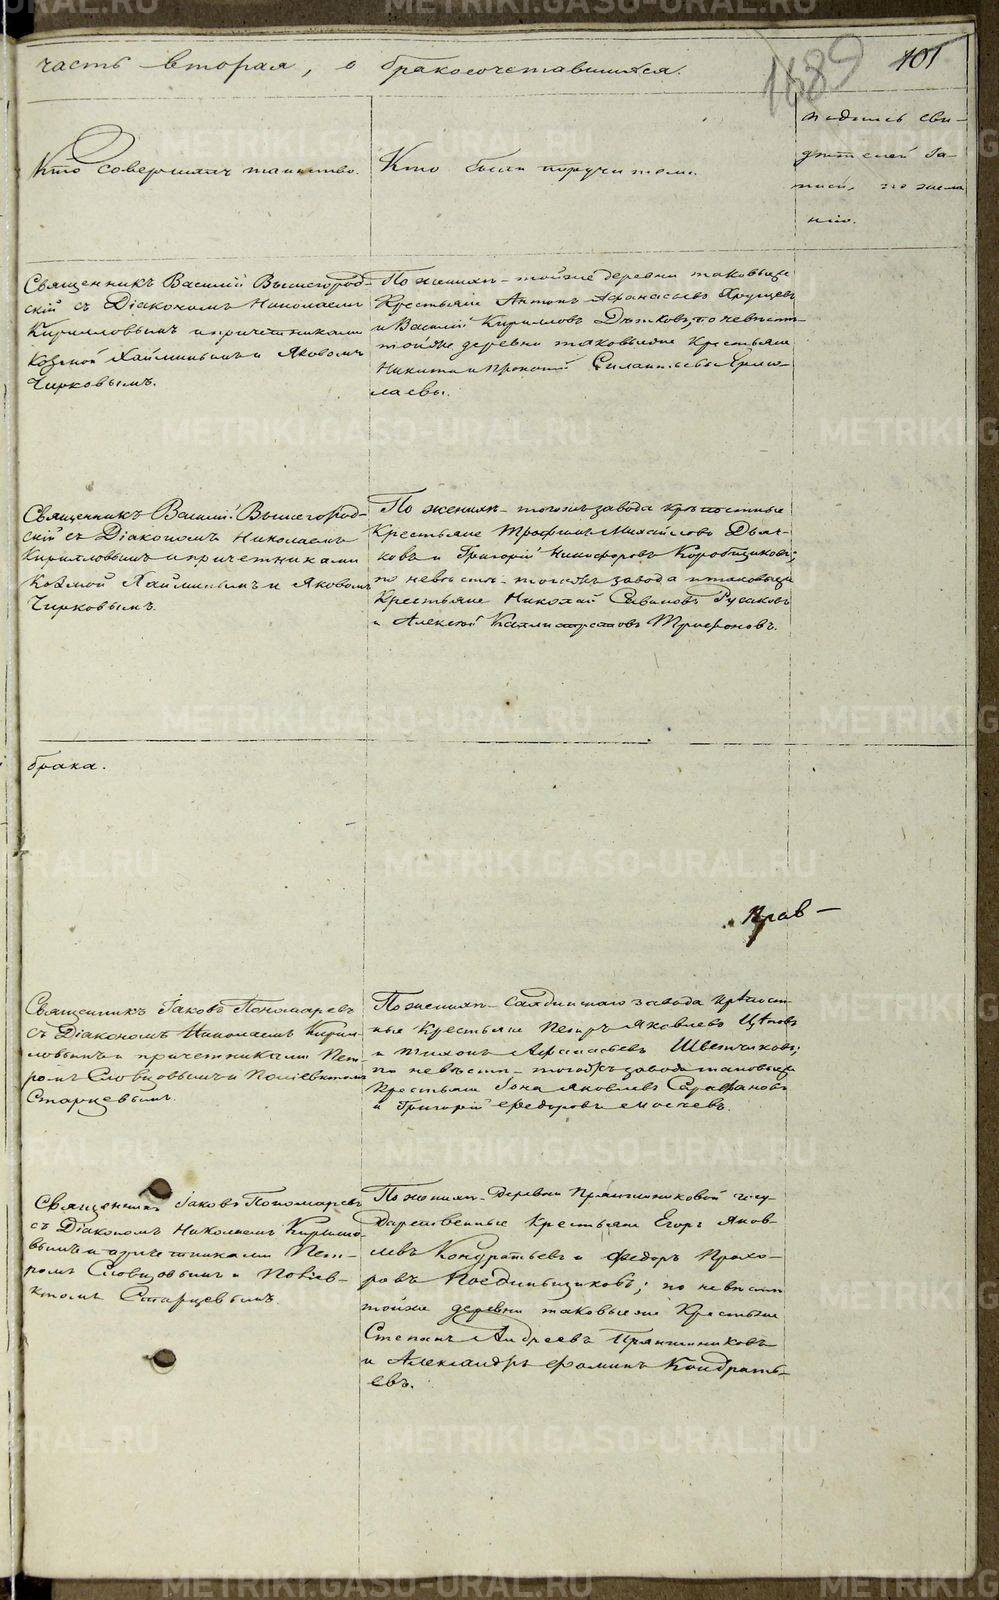 часть вторая, о бракосочетавшихся.
1889
101
Кто совершалъ таинство.
Кто были поручители.
подпись сви-
дѣтелей за-
писи, по жела
нію.
Священникъ Василій Вышегород-
скій съ Діакономъ Николаемъ
Кирилловымъ и причетниками
Козмой Хайминымъ и Яковомъ
Чирковымъ.
По женихѣ - тойже деревни таковыеже
Крестьяне Антонъ Афанасьевъ Хрущевъ
и Василій Кирилловъ Дятковъ, по невѣстѣ
тойже деревни таковыеже Крестьяне
Никита и Прокопій Силантьевы Ермо-
лаевы.
Священникъ Василій Вышегород-
скій съ Діакономъ Николаемъ
Кирилловымъ и причетниками
Козмой Хайминымъ и Яковомъ
Чирковымъ.
По женихѣ - тогожъ завода крѣпостные
Крестьяне Трофимъ Михайловъ Дьяч-
ковъ и Григорій Никифоровъ Коробщиковъ;
по невѣстѣ - тогожъ завода и таковыеже
Крестьяне Николай Савиновъ Русаковъ
и Алексѣй Каллистратовъ Трифоновъ.
брака.
Прав-
Священникъ Іаковъ Пономаревъ
съ Діакономъ Николаемъ Кирил-
ловымъ и причетниками Пет-
ромъ Словцовымъ и Поліевктомъ
Старцевымъ.
По женихѣ - Салдинскаго завода крѣпост-
ные Крестьяне Петръ Яковлевъ
и Тихонъ Афанасьевъ Шветчиковъ;
по невѣстѣ - тогожъ завода таковыеже
Крестьяне Іона Яковлевъ Сарафановъ
и Григорій Федоровъ
Священникъ Іаковъ Пономаревъ
съ Діакономъ Николаемъ Кирилло-
вымъ и причетниками Пет-
ромъ Словцовымъ и Поліев-
ктомъ Старцевымъ.
По женихѣ - деревни Прянишниковой госу-
дарственные Крестьяне Егоръ Яков-
левъ Кондратьевъ и Федоръ Прохо-
ровъ Поединьщиковъ; по невѣстѣ
тойже деревни таковыеже Крестьяне
Степанъ Андреевъ Прянишниковъ
и Александръ Фоминъ Кондрать-
евъ.
METRIKI.GASO-URAL.RU